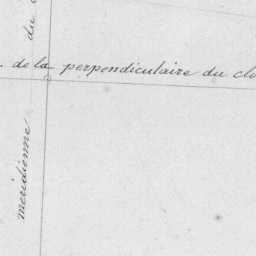 de la perpendiculaire du clo
méridienne du